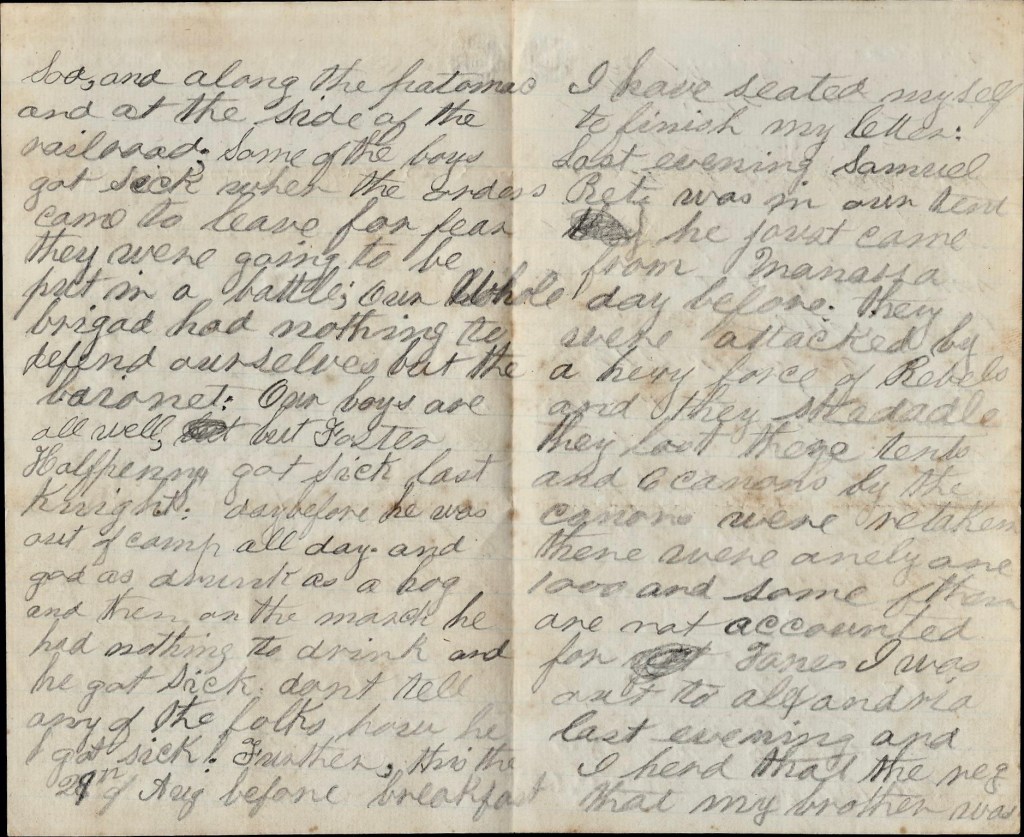 Sod, and along the patomac
and at the side of the
railroad; Some of the boys
got sick when the orders
came to leave for fear
they were going to be
put in a battle; our Whole
brigad had nothing to
defend ourselves but the
baionet: Our boys are
all well, but Foster
Halfpenny got sick last
Knight: daybefore he was
out of camp all day. and
god as drunk as a hog
and then on the march he
had nothing to drink and
he got sick. dont tell
any of the folks how he
got sick! Further, this the
29th of Aug before breakfast
I have seated myself
to finish my letter:
Last evening Samuel
was in our tent
he joust came
from Manassa
day before: they
were attacked by
a hevy force of Rebels
and they skedadle
they lost there tents
and 6 canons by the
canons were retaken
there were onely one
1000 and some of them
are not accounted
for I was
out to alexandria
last evening and
I herd that the reg
that my brother was